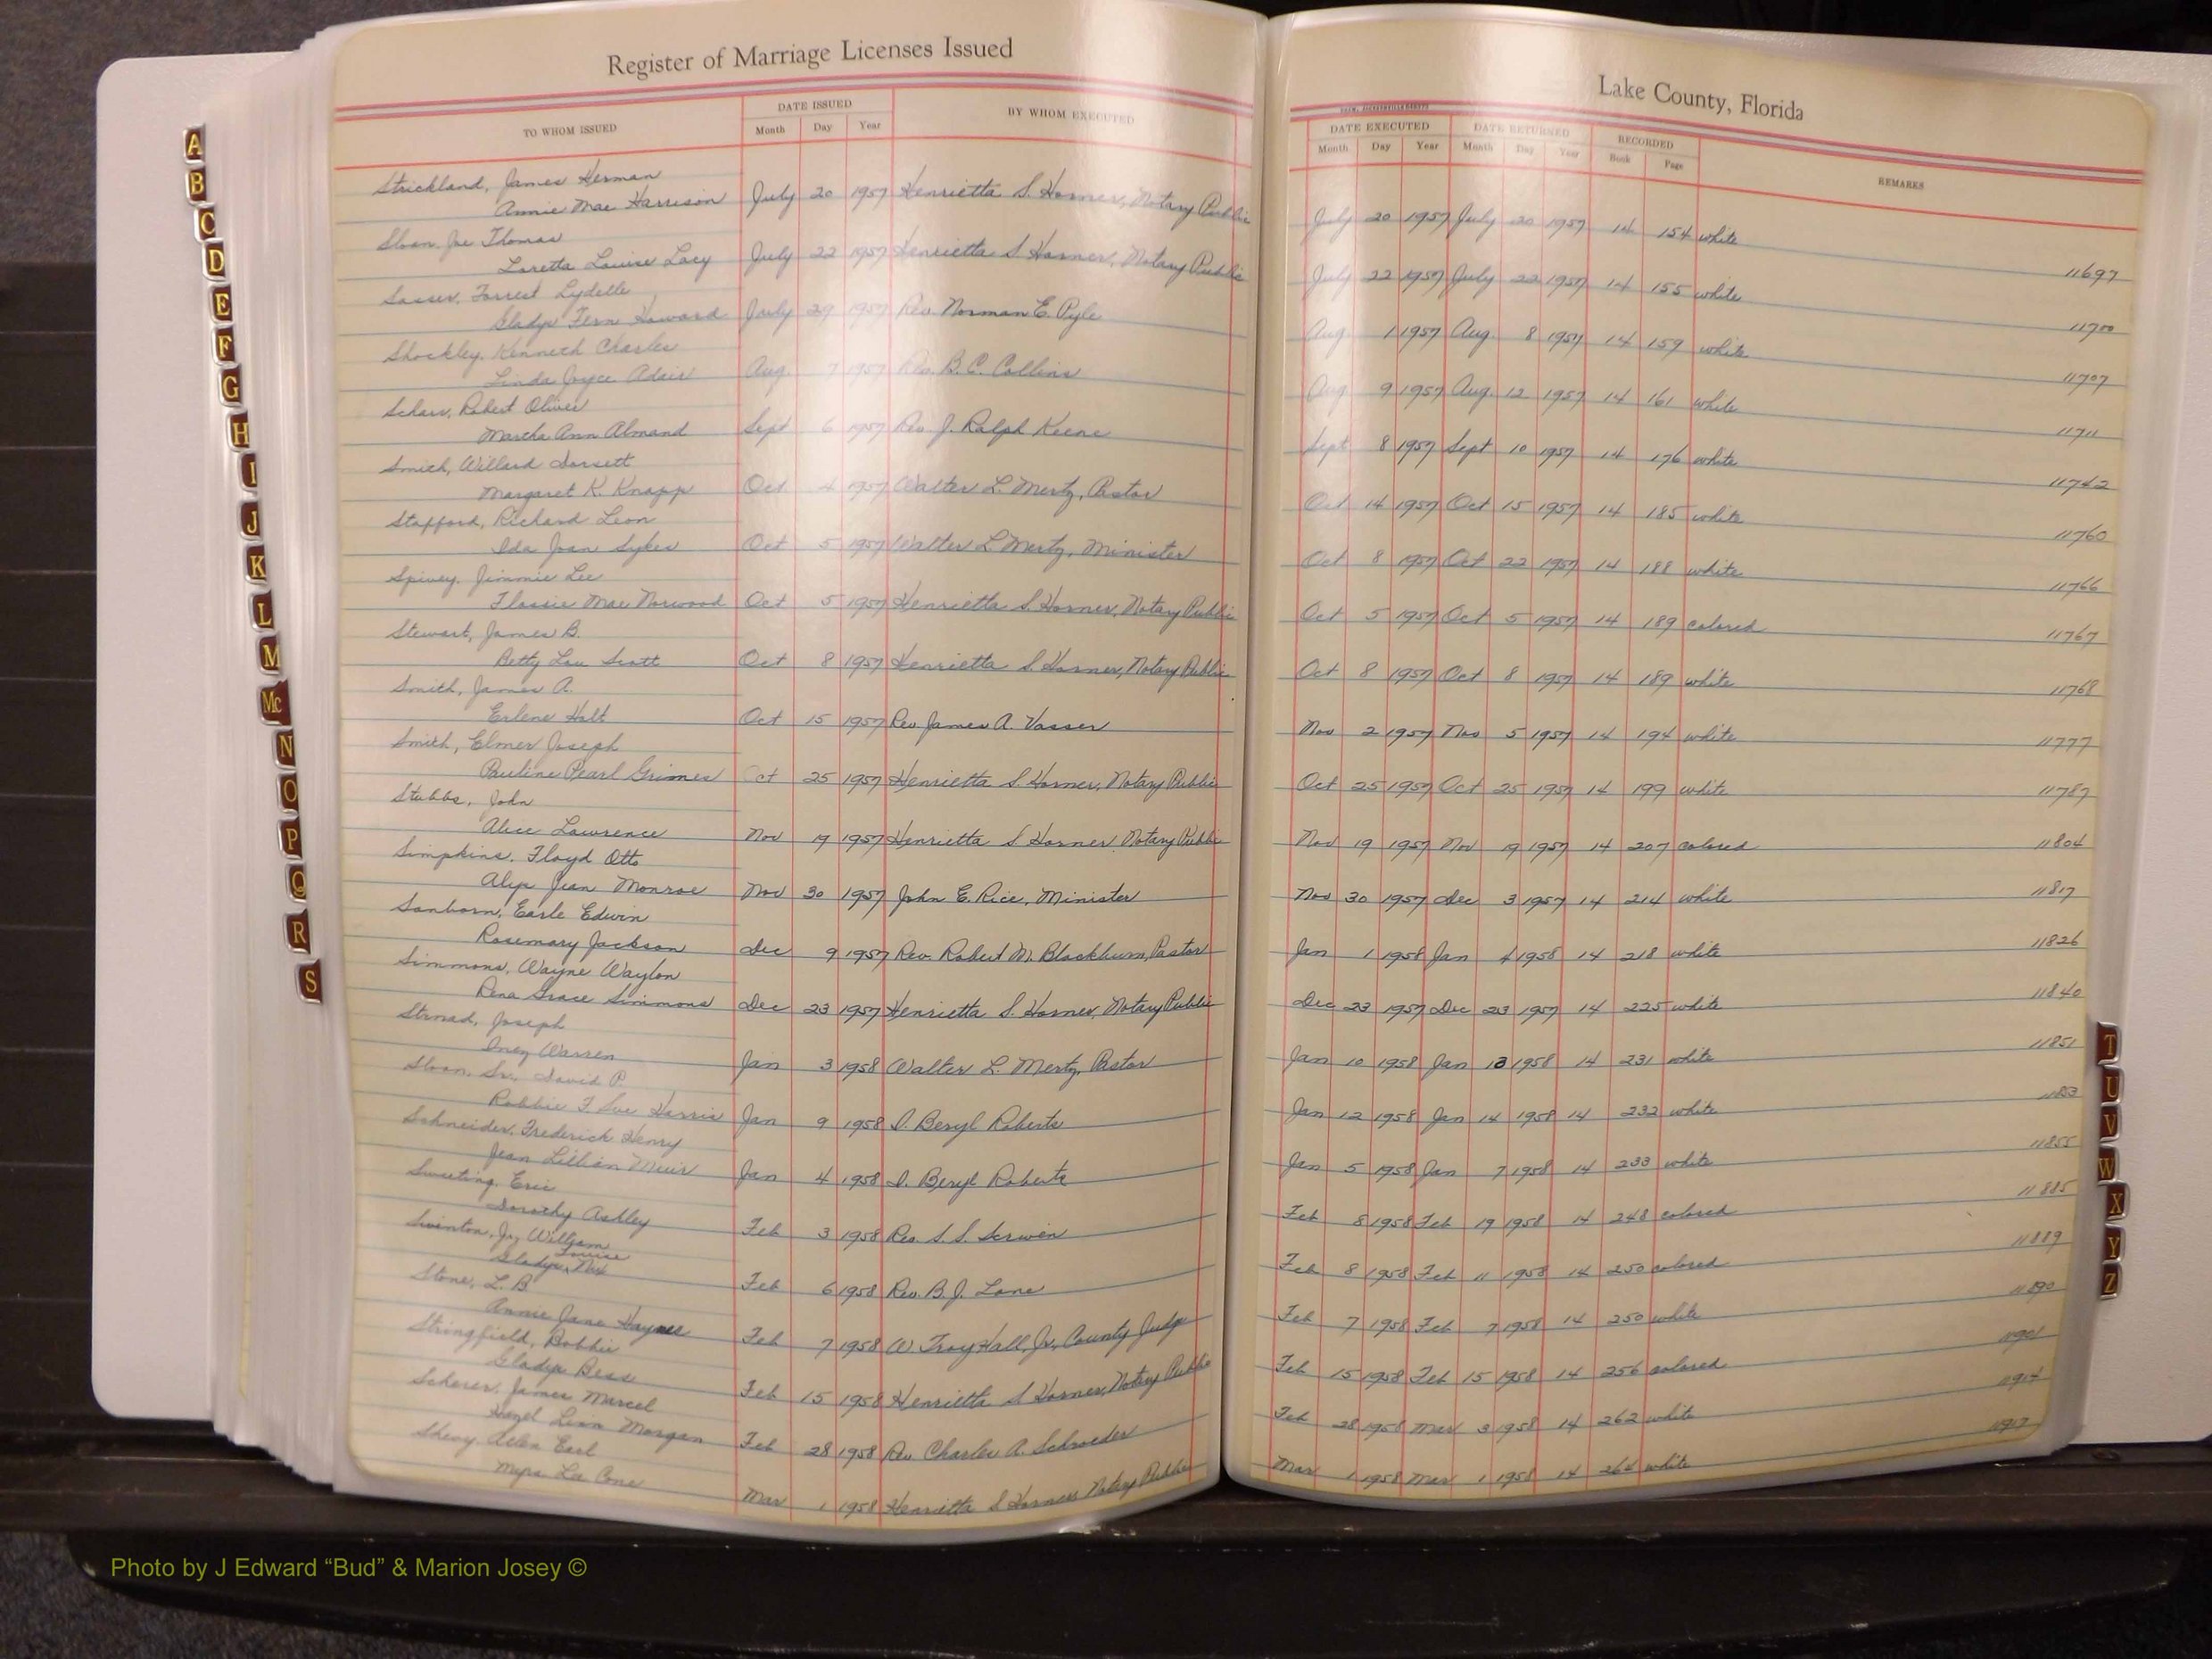 Register of Marriage Licenses Issued
TO WHOM ISSUED DATE ISSUED Month Day Year BY WHOM EXECUTED
Strickland, James Herman
Annie Mae Harrison July 20 1957 Henrietta S. Horner, Notary Public
Sloan, Joe Thomas
Loretta Louise Lacy July 22 1957 Henrietta S Horner, Notary Public
Sasser, Forrest Lydelle
Gladys Fern Howard July 29 1957 Rev. Norman E. Pyle
Shockley, Kenneth Charles
Linda Joyce Adair Aug. 7 1957 Rev. B. C. Collins
Scharr, Robert Oliver
Martha Ann Almand Sept 6 1957 Rev J. Ralph Keene
Smith, Willard Dorsett
Margaret K. Knapp Oct 4 1957 Walter L. Mertz, Pastor
Stafford, Richard Leon
Ida Joan Sykes Oct 5 1957 Walter L Mertz, Minister
Spivey, Jimmie Lee
Flossie Mae Norwood Oct 5 1957 Henrietta S. Horner, Notary Public
Stewart, James B.
Betty Lou Scott Oct 8 1957 Henrietta S. Horner, Notary Public
Smith, James A.
Erlene Holt Oct 15 1957 Rev James A. Vasser
Smith, Elmer Joseph
Pauline Pearl Grimes Oct 25 1957 Henrietta S. Horner, Notary Public
Stubbs, John
Alice Lawrence Nov 19 1957 Henrietta S Horner Notary Public
Simpkins, Floyd Otto
Jean Monroe Nov 30 1957 John E. Rice, Minister
Sanborn, Earle Edwin
Rosemary Jackson Dec 9 1957 Rev. Robert M. Blackburn, Pastor
Simmons, Wayne Waylon
Rena Grace Simmons Dec 23 1957 Henrietta S. Horner, Notary Public
Strnad, Joseph
Inez Warren Jan 3 1958 Walter L. Mertz, Pastor
Sloan, Sr., David P.
Robbie F. Sue Harris Jan 9 1958 D. Beryl Roberts
Schneider, Frederick Henry
Jean Lillian Muir Jan 4 1958 D. Beryl Roberts
Sweeting, Eric
Dorothy Ashley Feb 3 1958 Rev. S. S.
Swinton, Jr, William
Louise
Gladys Nix Feb 6 1958 Rev. B. J. Lane
Stone, L. B
Annie Jane Haynes Feb 7 1958 W. Troy Hall, Jr., County Judge
Stringfield, Bobbie
Gladys Bess Feb 15 1958 Henrietta S Horner, Notary Public
Scherer, James Marcel
Hazel Linn Morgan Feb 28 1958 Rev Charles A. Schroeder
Allen Earl
Myra Lee Cone Mar 1 1958 Henrietta S Horner Notary Public
Lake County, Florida
DATE EXECUTED Month Day Year DATE RETURNED Month Day Year RECORDED Book Page REMARKS
July 20 1957 July 20 1957 14 154 white 11697
July 22 1957 July 22 1957 14 155 white 11700
Aug. 1 1957 Aug. 8 1957 14 159 white 11707
Aug 9 1957 Aug. 12 1957 14 161 white 11711
Sept 8 1957 Sept 10 1957 14 176 white 11742
Oct 14 1957 Oct 15 1957 14 185 white 11760
Oct 8 1957 Oct 22 1957 14 188 white 11766
Oct 5 1957 Oct 5 1957 14 189 colored 11767
Oct 8 1957 Oct 8 1957 14 189 white 11768
Nov 2 1957 Nov 5 1957 14 194 white 11777
Oct 25 1957 Oct 25 1957 14 199 white 11787
Nov 19 1957 Nov 19 1957 14 207 colored 11804
Nov 30 1957 Dec 3 1957 14 214 white 11817
Jan 1 1958 Jan 4 1958 14 218 white 11826
Dec 23 1957 Dec 23 1957 14 225 white 11840
Jan 10 1958 Jan 13 1958 14 231 white 11851
Jan 12 1958 Jan 14 1958 14 232 white
Jan 5 1958 Jan 7 1958 14 233 white 11855
Feb 8 1958 Feb 19 1958 14 248 colored 11885
Feb 8 1958 Feb 11 1958 14 250 colored 11889
Feb 7 1958 Feb 7 1958 14 250 white 11890
Feb 15 1958 Feb 15 1958 14 256 colored 11901
Feb 28 1958 Mar 3 1958 14 262 white 11914
Mar 1 1958 Mar 1 1958 14 264 white 11917
A
B
C
D
E
F
G
H
I
J
K
L
M
Mc
N
O
P
Q
R
S
T
U
V
W
X
Y
Z
Photo by J Edward “Bud” & Marion Josey ©